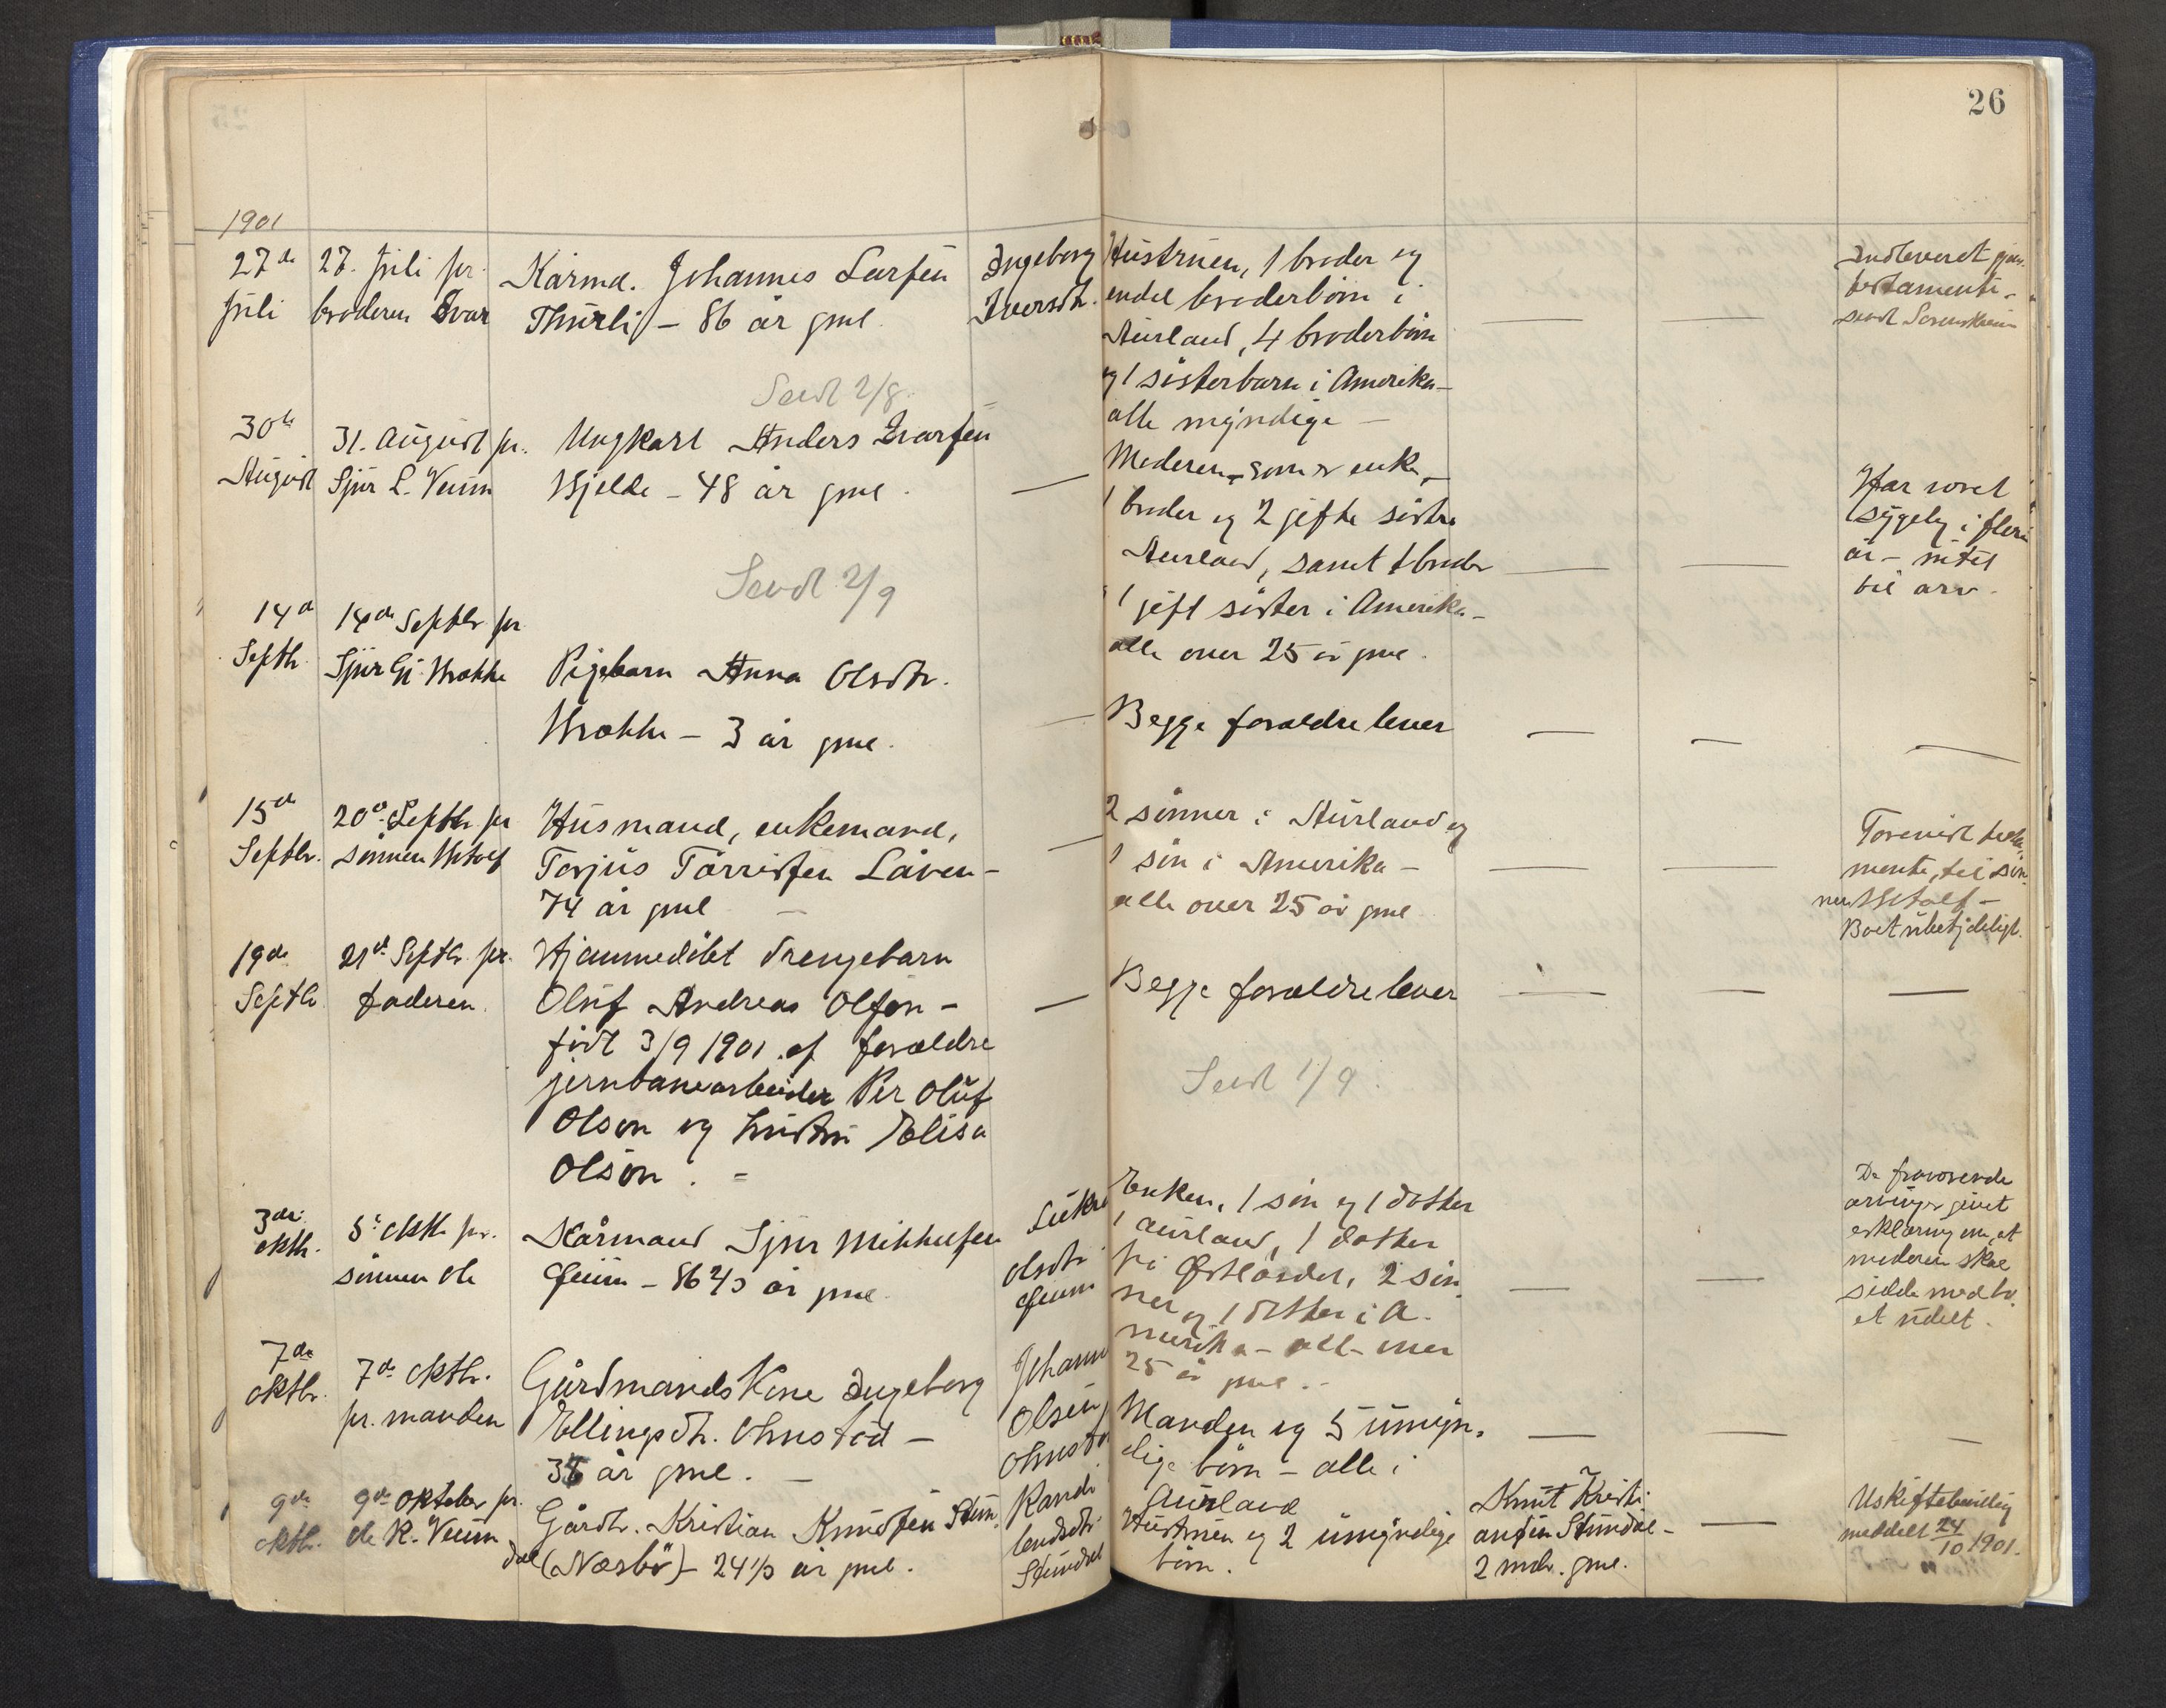 26
1901
27de
Juli
27. Juli pr.
broderen Ivar
Kårmd. Johannes Larsen
Thurli – 86 år gml.
Ingeborg
Iversdtr.
Hustruen, 1 broder og
endel broderbörn i
Aurland, 4 broderbörn
og 1 sösterbarn i Amerika –
alle myndige –
Indleveret
testamente –
sendt Sorenskriv
Sendt 2/8
30te
August
31. August pr.
Sjur L. Veum
Ungkarl Anders Ivarsen
Hjelde – 48 år gml.
—
Moderen, som er enke, –
1 broder og 2 gifte söstre
Aurland, samt 1 broder
1 gift söster i Amerika –
alle over 25 år gml.
Har voret
sygelig i flere
år – intet
til arv.
Sendt 2/9
14de
Septbr.
14de Septbr pr
Sjur Gj. Brække
Pigebarn Anna Olsdtr.
Brække – 3 år gml.
—
Begge foræld­re lever
—
15de
Septbr.
20de Septbr pr
sönnen Botolf
Husmand, enkemand,
Torjus Torrissen Låven –
74 år gml –
—
2 sönner i Aurland og
1 sön i Amerika –
alle over 25 år gml
Forevist testa-
mente, til sön-
nen Botolf –
Boet ubetydeligt.
19de
Septbr
21de Septbr. pr.
faderen.
Hjemmedöbt drengebarn
Oluf Andreas Olson –
födt 3/9 1901 af forældre
jernbanearbeider Per Oluf
Olson og hustru Elisa
Olson. –
—
Begge forældre lever
—
Sendt 1/9.
3die
oktbr.
5te oktbr pr.
sönnen Ole
Kårmand Sjur Mikkelsen
Gjeim – 86 2/3 år gml.
Olsdtr
Gjeim
Enken, 1 sön og 1 datter
i Aurland, 1 datter
på Østlandet, 2 sön-
ner og 1 datter i A-
merika – alle over
25 år gml. –
De fraværende
arvinger givet
erklæring om, at
moderen skal
sidde med bo-
et udelt.
7de
oktbr.
7de oktbr.
pr. manden
Gårdmandskone Ingeborg
Ellingsdtr. Ohnstad –
38 år gml. –
Johann
Olsen
Ohnsta
Manden og 5 umyn-
dige börn – alle i
Aurland
9de
oktbr.
9de oktober pr.
Ole K. Veum
Gårdbr. Kristian Knudsen Stun-
dal (Næsbö) – 24 1/3 år gml.
Randi
Stundal
Hustruen og 2 umyndige
börn.
Knut Kristi-
ansen Stundal –
2 mdr. gml.
Uskiftebevilling
meddelt 24/10 1901.